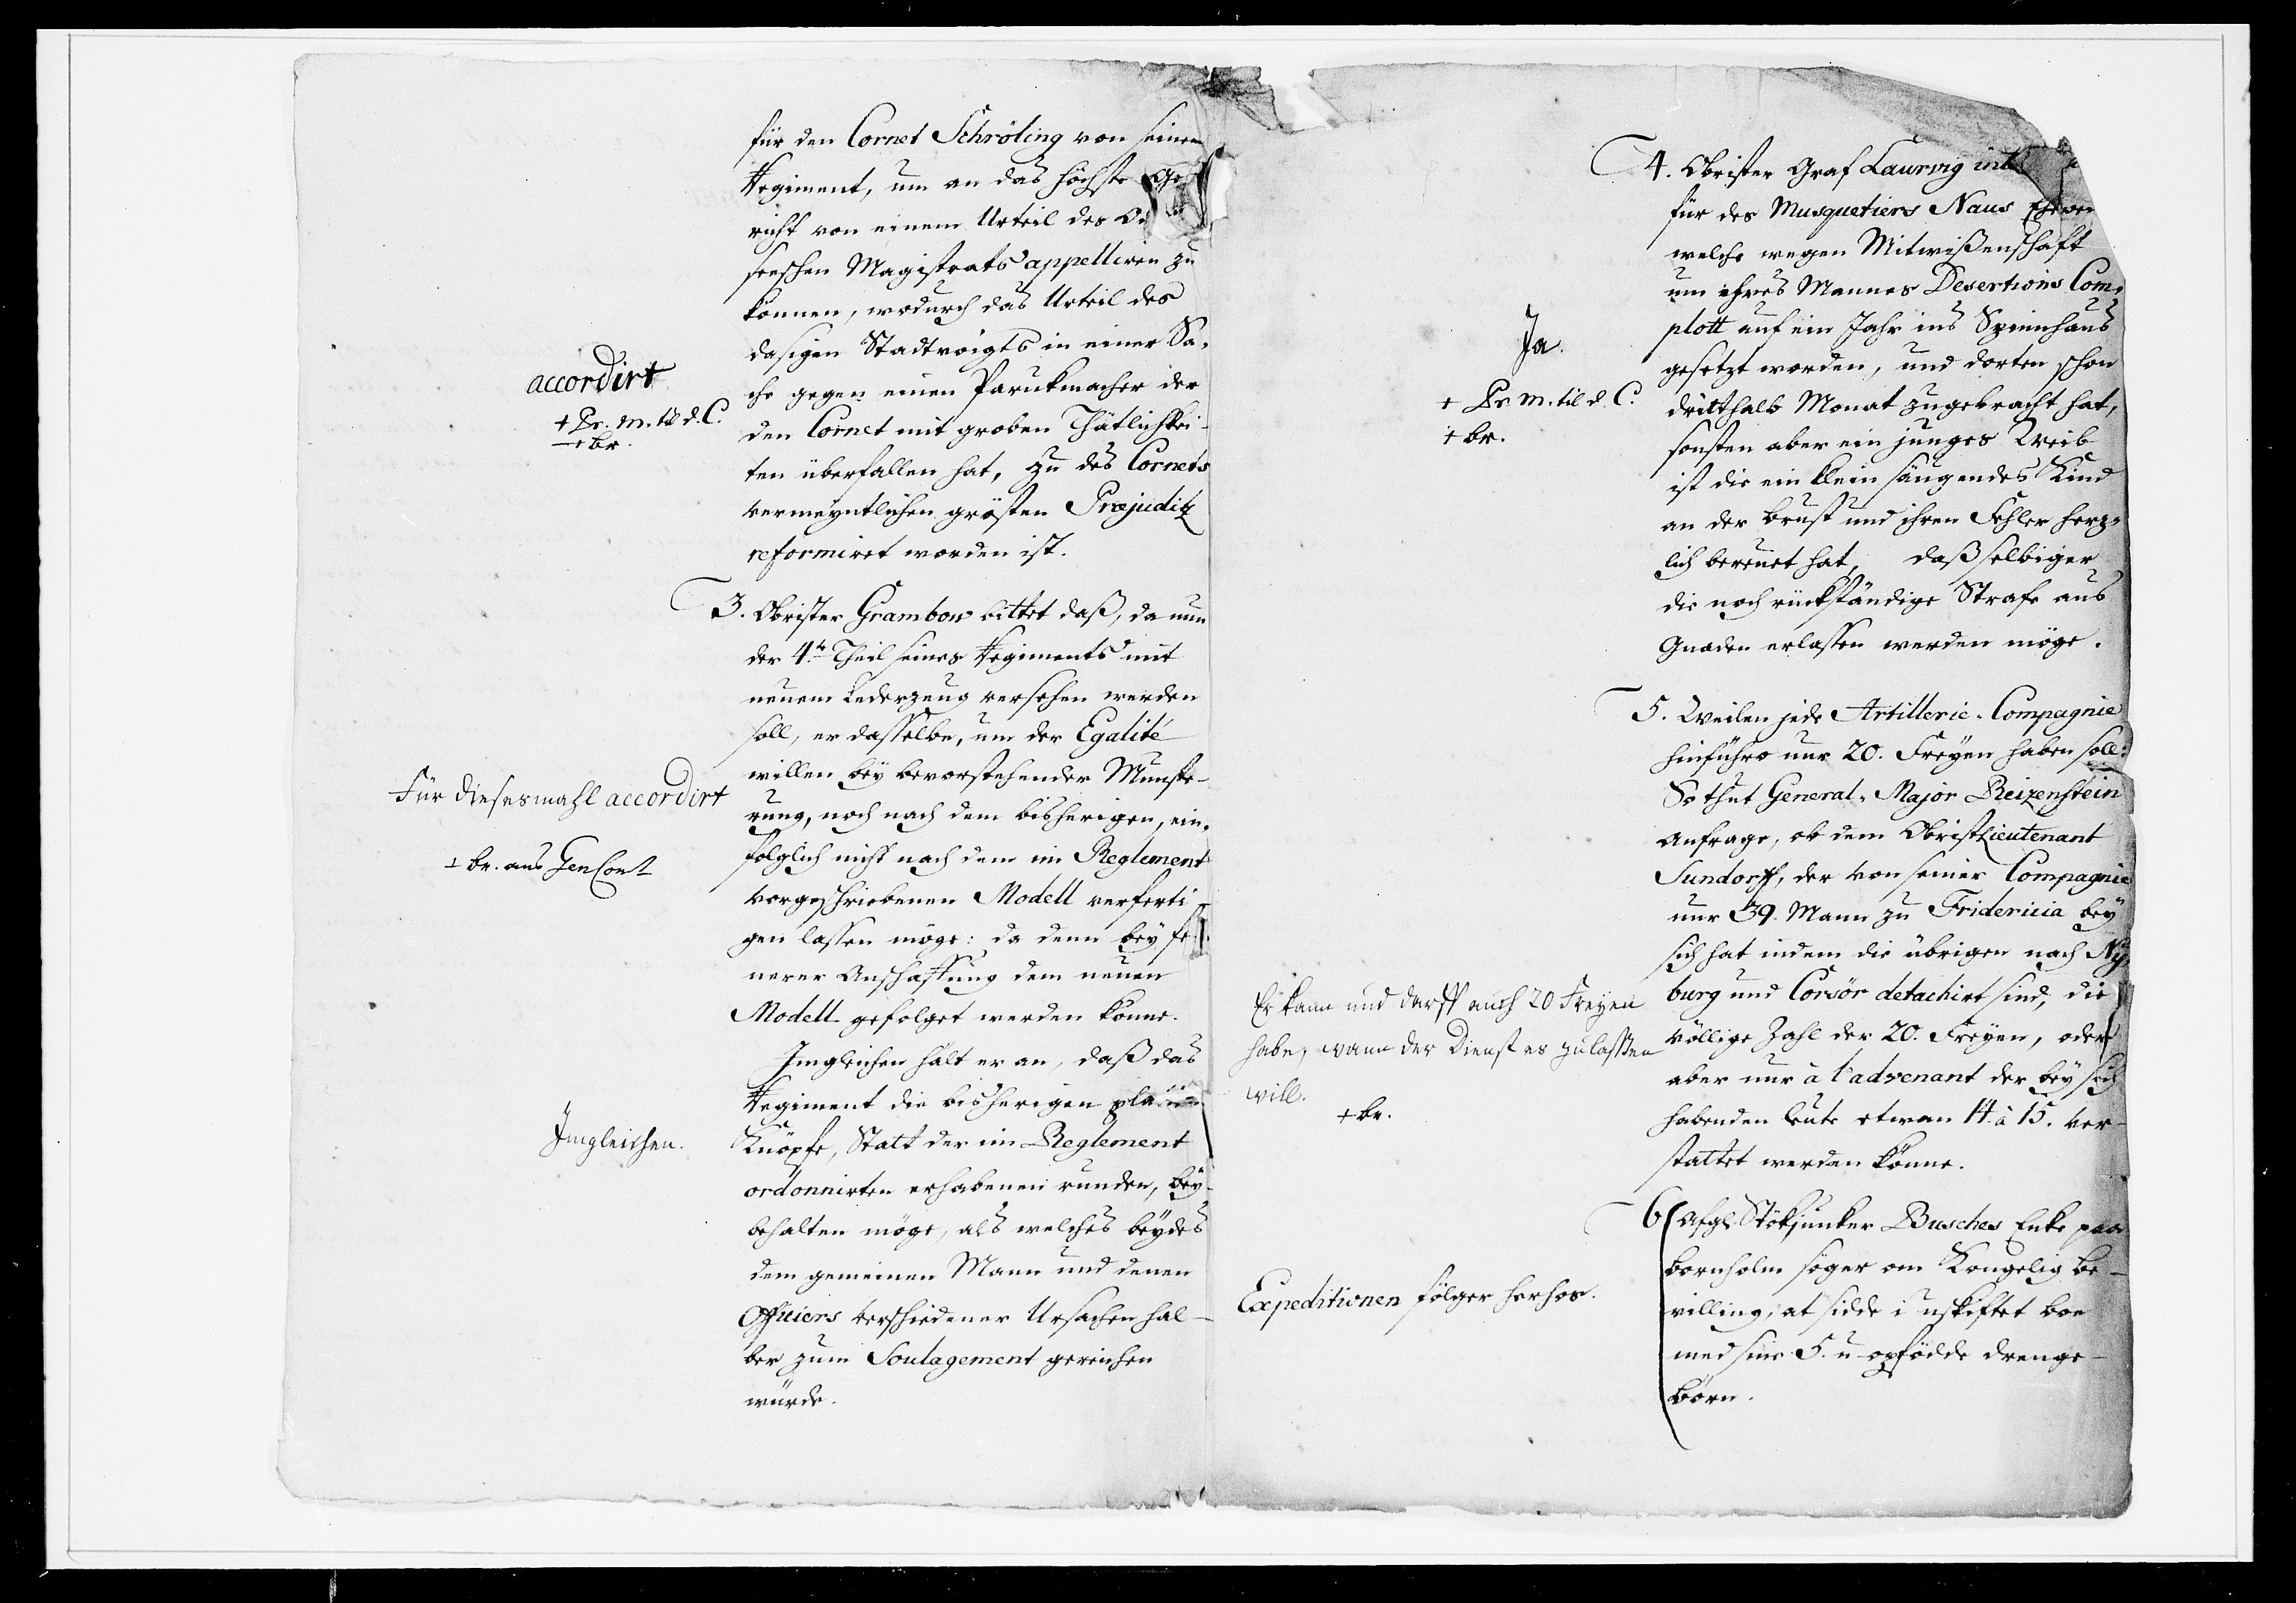 für den Cornet Schröling von seinem
Regiment, um an das höchste Ge-
richt von einem Urteil des Od
seeschen Magistrats appelliren zu
können, wodurch das Urteil des
dasigen Stadtvoigts in einer Sa-
che gegen einen Parukmacher der
den Cornet mit groben Thätlichkei-
ten überfallen hat, zu des Cornets
vermeyntlichen grösten Præjuditz
reformiret worden ist.
accordirt
+ Pr. M. til d. C.
+ br.
3. Obrister Grambow bittet daß, da nun
der 4.te Theil seines Regiments mit
neuem Lederzeug versehen werden
soll, er dasselbe, um der Egalité
willen bey bevorstehender Munste-
rung, noch nach dem bisherigen, ein-
folglich nicht nach dem im Reglement
vorgeschriebenen Modell verferti-
gen lassen möge: da denn bey fe
nerer Anschaffung dem neuen
Modell gefolget werden könne.
Für diesesmahl accordirt
+ br. aus Gen Com
Imgleichen hält er an, daß das
Regiment die bisherigen
Knöpfe, Statt der im Reglement
ordonnirten erhabenen runden, bey-
behalten möge, als welches beydes
dem gemeinen Mann und denen
Officiers verschiedener Ursachen hal-
ber zum Soulagement gereichen
würde.
Imgleichen.
4. Obrister Graf Laurvig int
für des Musquetiers Naus Ehewei
welche wegen Mitwißenschaft
um ihres Mannes Desertions Com-
plott auf ein Jahr ins Spinnhaus
gesetzt worden, und dorten schon
dritthalb Monat zugebracht hat,
sonsten aber ein junges Weib
ist die ein klein säugendes Kind
an der Brust und ihren Fehler herz-
lich bereuet hat, daß selbiger
die noch rückständige Strafe aus
Gnaden erlassen werden möge.
Ja.
+ Pr. M. til d. C.
+ br.
5. Weilen jede Artillerie-Compagnie
hinführo nur 20. Freyen haben soll:
So thut General-Major Reizenstein
Anfrage, ob dem Obristlieutenant
Sundorff, der von seiner Compagnie
nur 39. Mann zu Fridericia bey
sich hat indem die übrigen nach Ny-
burg und Corsör detachirt sind, die
völlige Zahl der 20. Freyen, oder
aber nur à l'advenant der bey sich
habenden Leute etwan 14 à 15. ver-
stattet werden könne.
Er kann und darff auch 20 Freyen
habe, wann der Dienst es zulassen
will.
+ br.
6 Afgl. Stökjunker Busches Enke paa
Bornholm söger om Kongelig be-
villing, at sidde i uskiftet boe
med sine 5. u-opfödde drenge-
börn.
Expeditionen fölger herhos.